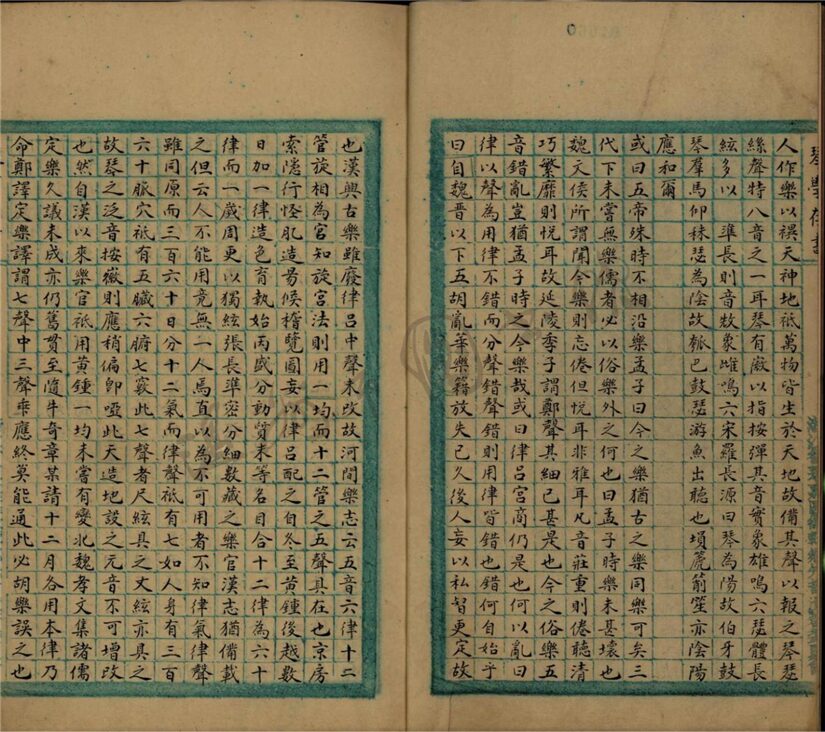 琴學
人作樂以禩天神地祇萬物皆生於天地故備其聲以報之琴瑟
絲聲特八音之一耳琴有廠以指按彈其音實象雄鳴六瑟體長
絃多以 準長則音数象雌鳴六宋羅長源曰琴為陽故伯牙鼓
琴羣馬仰秣瑟為陰故瓠巴鼓瑟游魚出聽也塤篪簫笙亦陰陽
應和爾
或曰五帝殊時不相沿樂孟子曰今之樂猶古之樂同樂可矣三
代下未嘗無樂儒者必以俗樂外之何也曰孟子時樂未甚壞也
魏文侯所謂聞今樂則忘倦但悅耳非雅耳凡音莊重則倦聽清
巧繁靡則悅耳故延陵季子謂鄭聲其細已甚是也今之俗樂五
音錯亂豈猶孟子時之今樂哉或曰律呂宮商仍是也何以亂曰
律以聲為用律不錯而分聲錯聲錯則用律皆錯也錯何自始乎
曰自魏晉以下五胡亂華樂籍放失已久後人妄以私智更定故
也漢興古樂雖廢律呂中聲未改故河間樂志云五音六律十二
管旋相為宮知旋宮法則用一均而十二管之五聲具在也京房
索隱行怪肊造昜候稽覽圖妄以律呂配之自冬至黃鍾後越數
日加一律造色育執始丙盛分動質末等名目合十二律為六十
律而一歲周更以獨絃張長準密分細數藏之樂官漢志猶備載
之但云人不能用竟無一人焉直以為不可用者不知律氣律聲
雖同原而三百六十日分十二氣而律聲祇有七如人身有三百
六十脈穴祇有五臟六腑七竅此七聲者尺絃具之丈絃亦具之
故琴之泛音按嶽則應稍偏卽啞此天造地設之元音不可增改
也然自漢以來樂官祇用黃鍾一均未嘗有變北魏孝文集諸儒
定樂久議未成亦仍舊貫至隨牛奇章某請十二月各用本律乃
命鄭譯定樂譯謂七聲中三聲乖應終莫能通此必胡樂誤之也